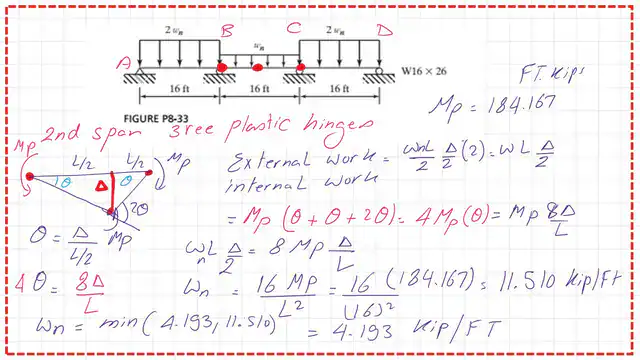 2 wn wn 2 wn
A B C D
W16 × 26
16 ft 16 ft 16 ft
FIGURE P8-33
FT. Kips
Mp = 184.167
2nd span 3ree plastic hinges
Mp L/2 L/2 Mp
θ Δ θ
2θ
Mp
External work = wnL/2 Δ/2 (2) = wL Δ/2
internal work
= Mp (θ + θ + 2θ) = 4Mp(θ) = Mp 8Δ/L
θ = Δ/(L/2)
wn L Δ/2 = 8 Mp Δ/L
4 θ = 8Δ/L
wn = 16 Mp/L² = 16 (184.167)/(16)² = 11.510 Kip/Ft
wn = min( 4.193, 11.510) = 4.193 Kip/FT